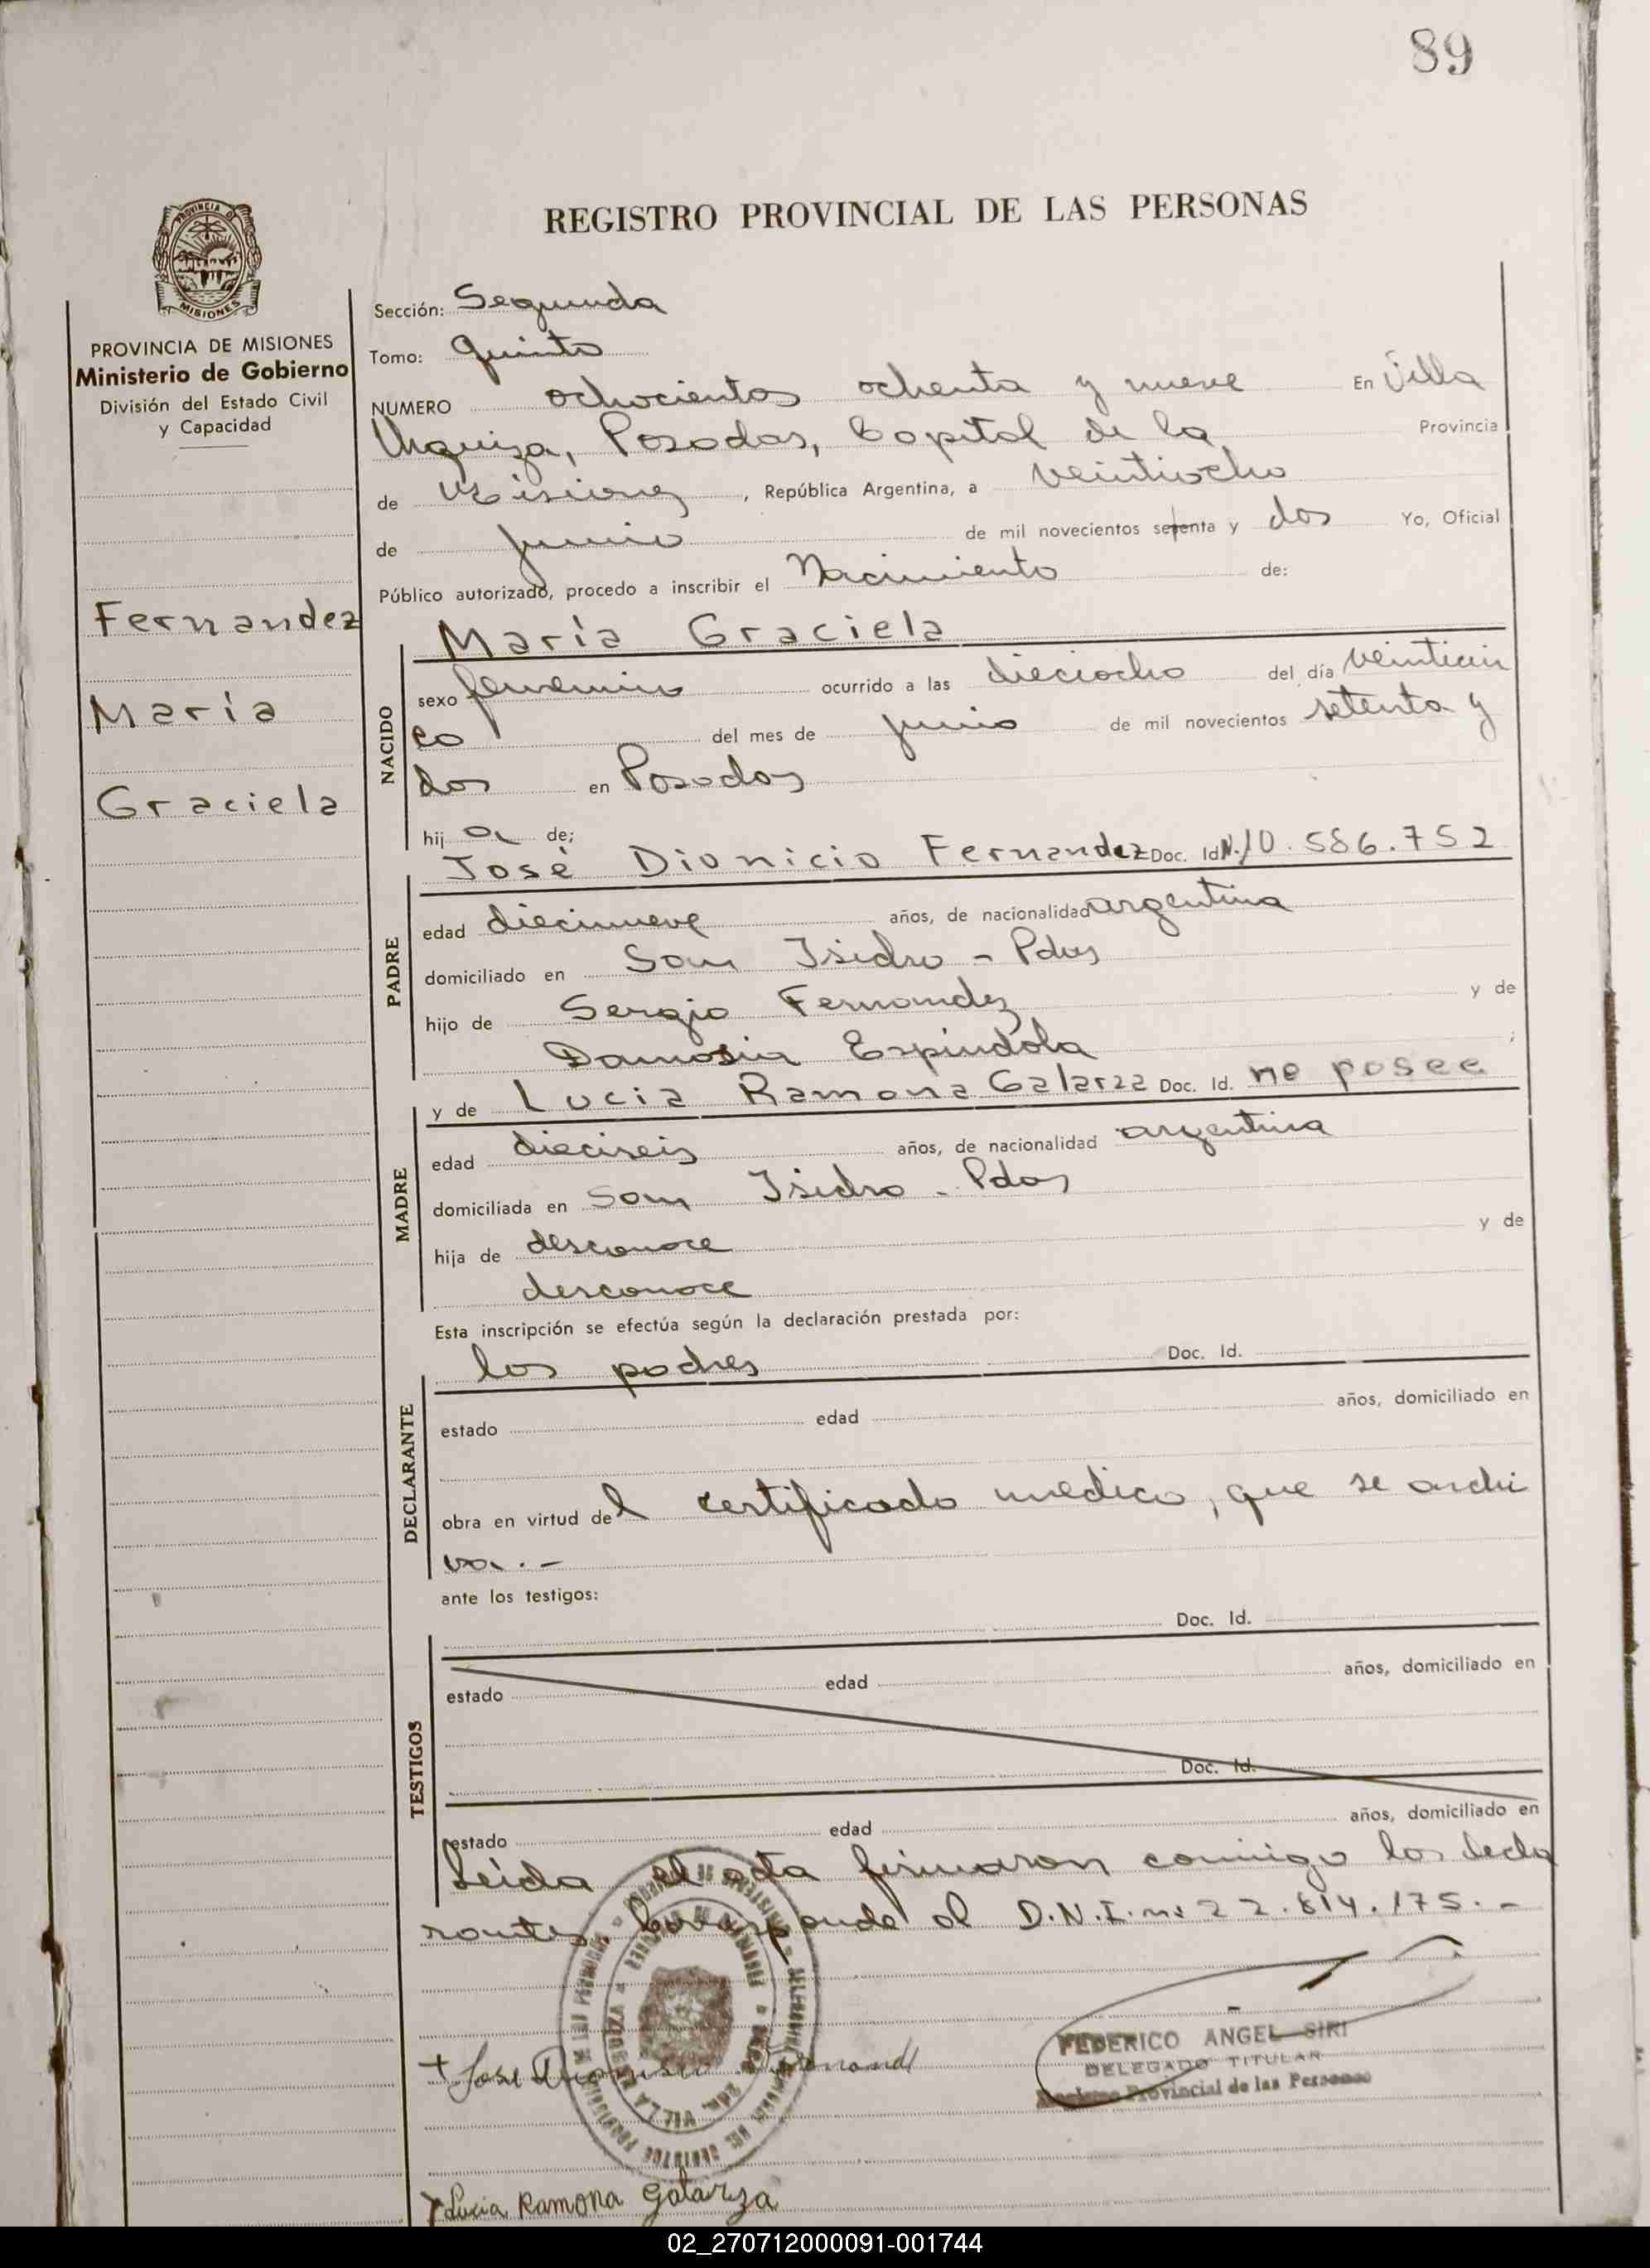 89
REGISTRO PROVINCIAL DE LAS PERSONAS
PROVINCIA DE
MISIONES
PROVINCIA DE MISIONES
Ministerio de Gobierno
División del Estado Civil
y Capacidad
Fernandez
María
Graciela
Sección: Segunda
Tomo: Quinto
NUMERO ochocientos ochenta y nueve En Villa
Urquiza, Posadas, Capital de la Provincia
de Misiones, República Argentina, a veintiocho
de junio de mil novecientos setenta y dos Yo, Oficial
Público autorizado, procedo a inscribir el Nacimiento de:
María Graciela
NACIDO
sexo femenino ocurrido a las dieciocho del día veinticin
co del mes de junio de mil novecientos setenta y
dos en Posadas
hij a de;
José Dionicio Fernandez Doc. Id N. 10.586.752
PADRE
edad diecinueve años, de nacionalidad argentina
domiciliado en San Isidro - Pdas
hijo de Sergio Fernandez y de
Espindola ;
y de Lucia Ramona Galarza Doc. Id. no posee
MADRE
edad dieciseis años, de nacionalidad argentina
domiciliada en San Isidro - Pdas
hija de desconoce y de
desconoce
Esta inscripción se efectúa según la declaración prestada por:
los padres Doc. Id.
DECLARANTE
estado edad años, domiciliado en
obra en virtud del certificado medico, que se archi
va. -
ante los testigos:
Doc. Id.
TESTIGOS
estado edad años, domiciliado en
Doc. Id.
estado edad años, domiciliado en
Leida el acta firmaron conmigo los decla
rantes. Corresponde al D.N.I. nº 22.814.175. -
FEDERICO ANGEL SIRI
DELEGADO TITULAR
Registro Provincial de las Personas
+ José Dionisio Fernand
Lucia Ramona Galarza
02_270712000091-001744